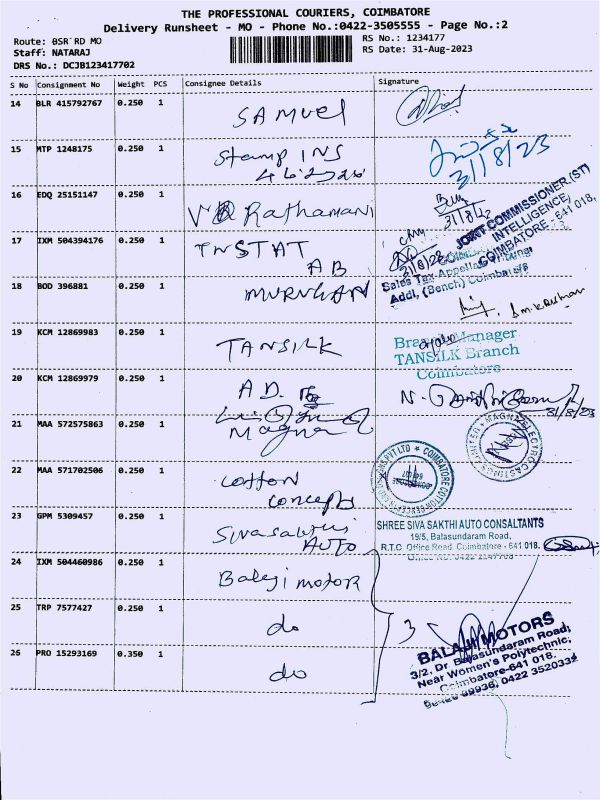 THE PROFESSIONAL COURIERS, COIMBATORE
Delivery Runsheet - MO - Phone No.:0422-3505555 - Page No.:2
Route: BSR RD MO
RS No.: 1234177
Staff: NATARAJ
RS Date: 31-Aug-2023
DRS No.: DCJB123417702
S No Consignment No Weight PCS Consignee Details Signature
14 BLR 415792767 0.250 1 SAMUEL
15 MTP 1248175 0.250 1 Stamp INS
31/8/23
16 EDQ 25151147 0.250 1 Rathamani
31/8/23
JOINT COMMISSIONER (ST)
INTELLIGENCE,
COIMBATORE - 641 018.
17 IXM 504394176 0.250 1 TNSTAT
AB
31/8/23
Sales Tax Appellate Tribunal
Addl. (Bench) Coimbatore
18 BOD 396881 0.250 1 MURUGAN
19 KCM 12869983 0.250 1 TANSILK
Branch Manager
TANSILK Branch
Coimbatore
20 KCM 12869979 0.250 1 A D.
31/8/23
21 MAA 572575863 0.250 1 Magna
MAGNA ELECTRO CASTINGS LIMITED
22 MAA 571702506 0.250 1 cotton
concepts
23 GPM 5309457 0.250 1 Sivasakthi
AUTO
SHREE SIVA SAKTHI AUTO CONSALTANTS
19/5, Balasundaram Road,
R.T.C Office Road, Coimbatore - 641 018.
24 IXM 504460986 0.250 1 Balaji motor
25 TRP 7577427 0.250 1 do
3
26 PRO 15293169 0.350 1 do
BALAJI MOTORS
3/2, Dr. Balasundaram Road,
Near Women's Polytechnic,
Coimbatore-641 018.